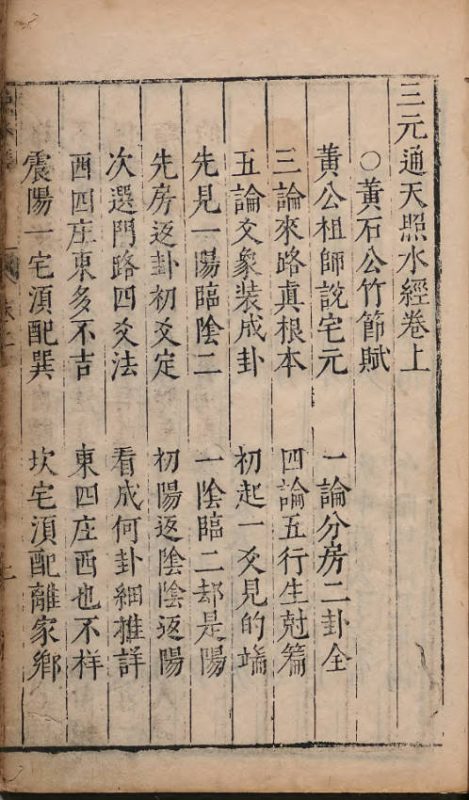 三元通天照水經卷上
○黃石公竹節賦
黃公祖師說宅元　一論分房二卦全
三論來路眞根本　四論五行生尅篇
五論文象装成卦　初起一爻見的端
先見一陽臨陰二　一陰臨二却是陽
先房返卦初爻定　初陽返陰陰返陽
次選門路四爻法　看成何卦細推詳
西四庄東多不吉　東四庄西也不祥
震陽一宅湏配巽　坎宅湏配離家鄉